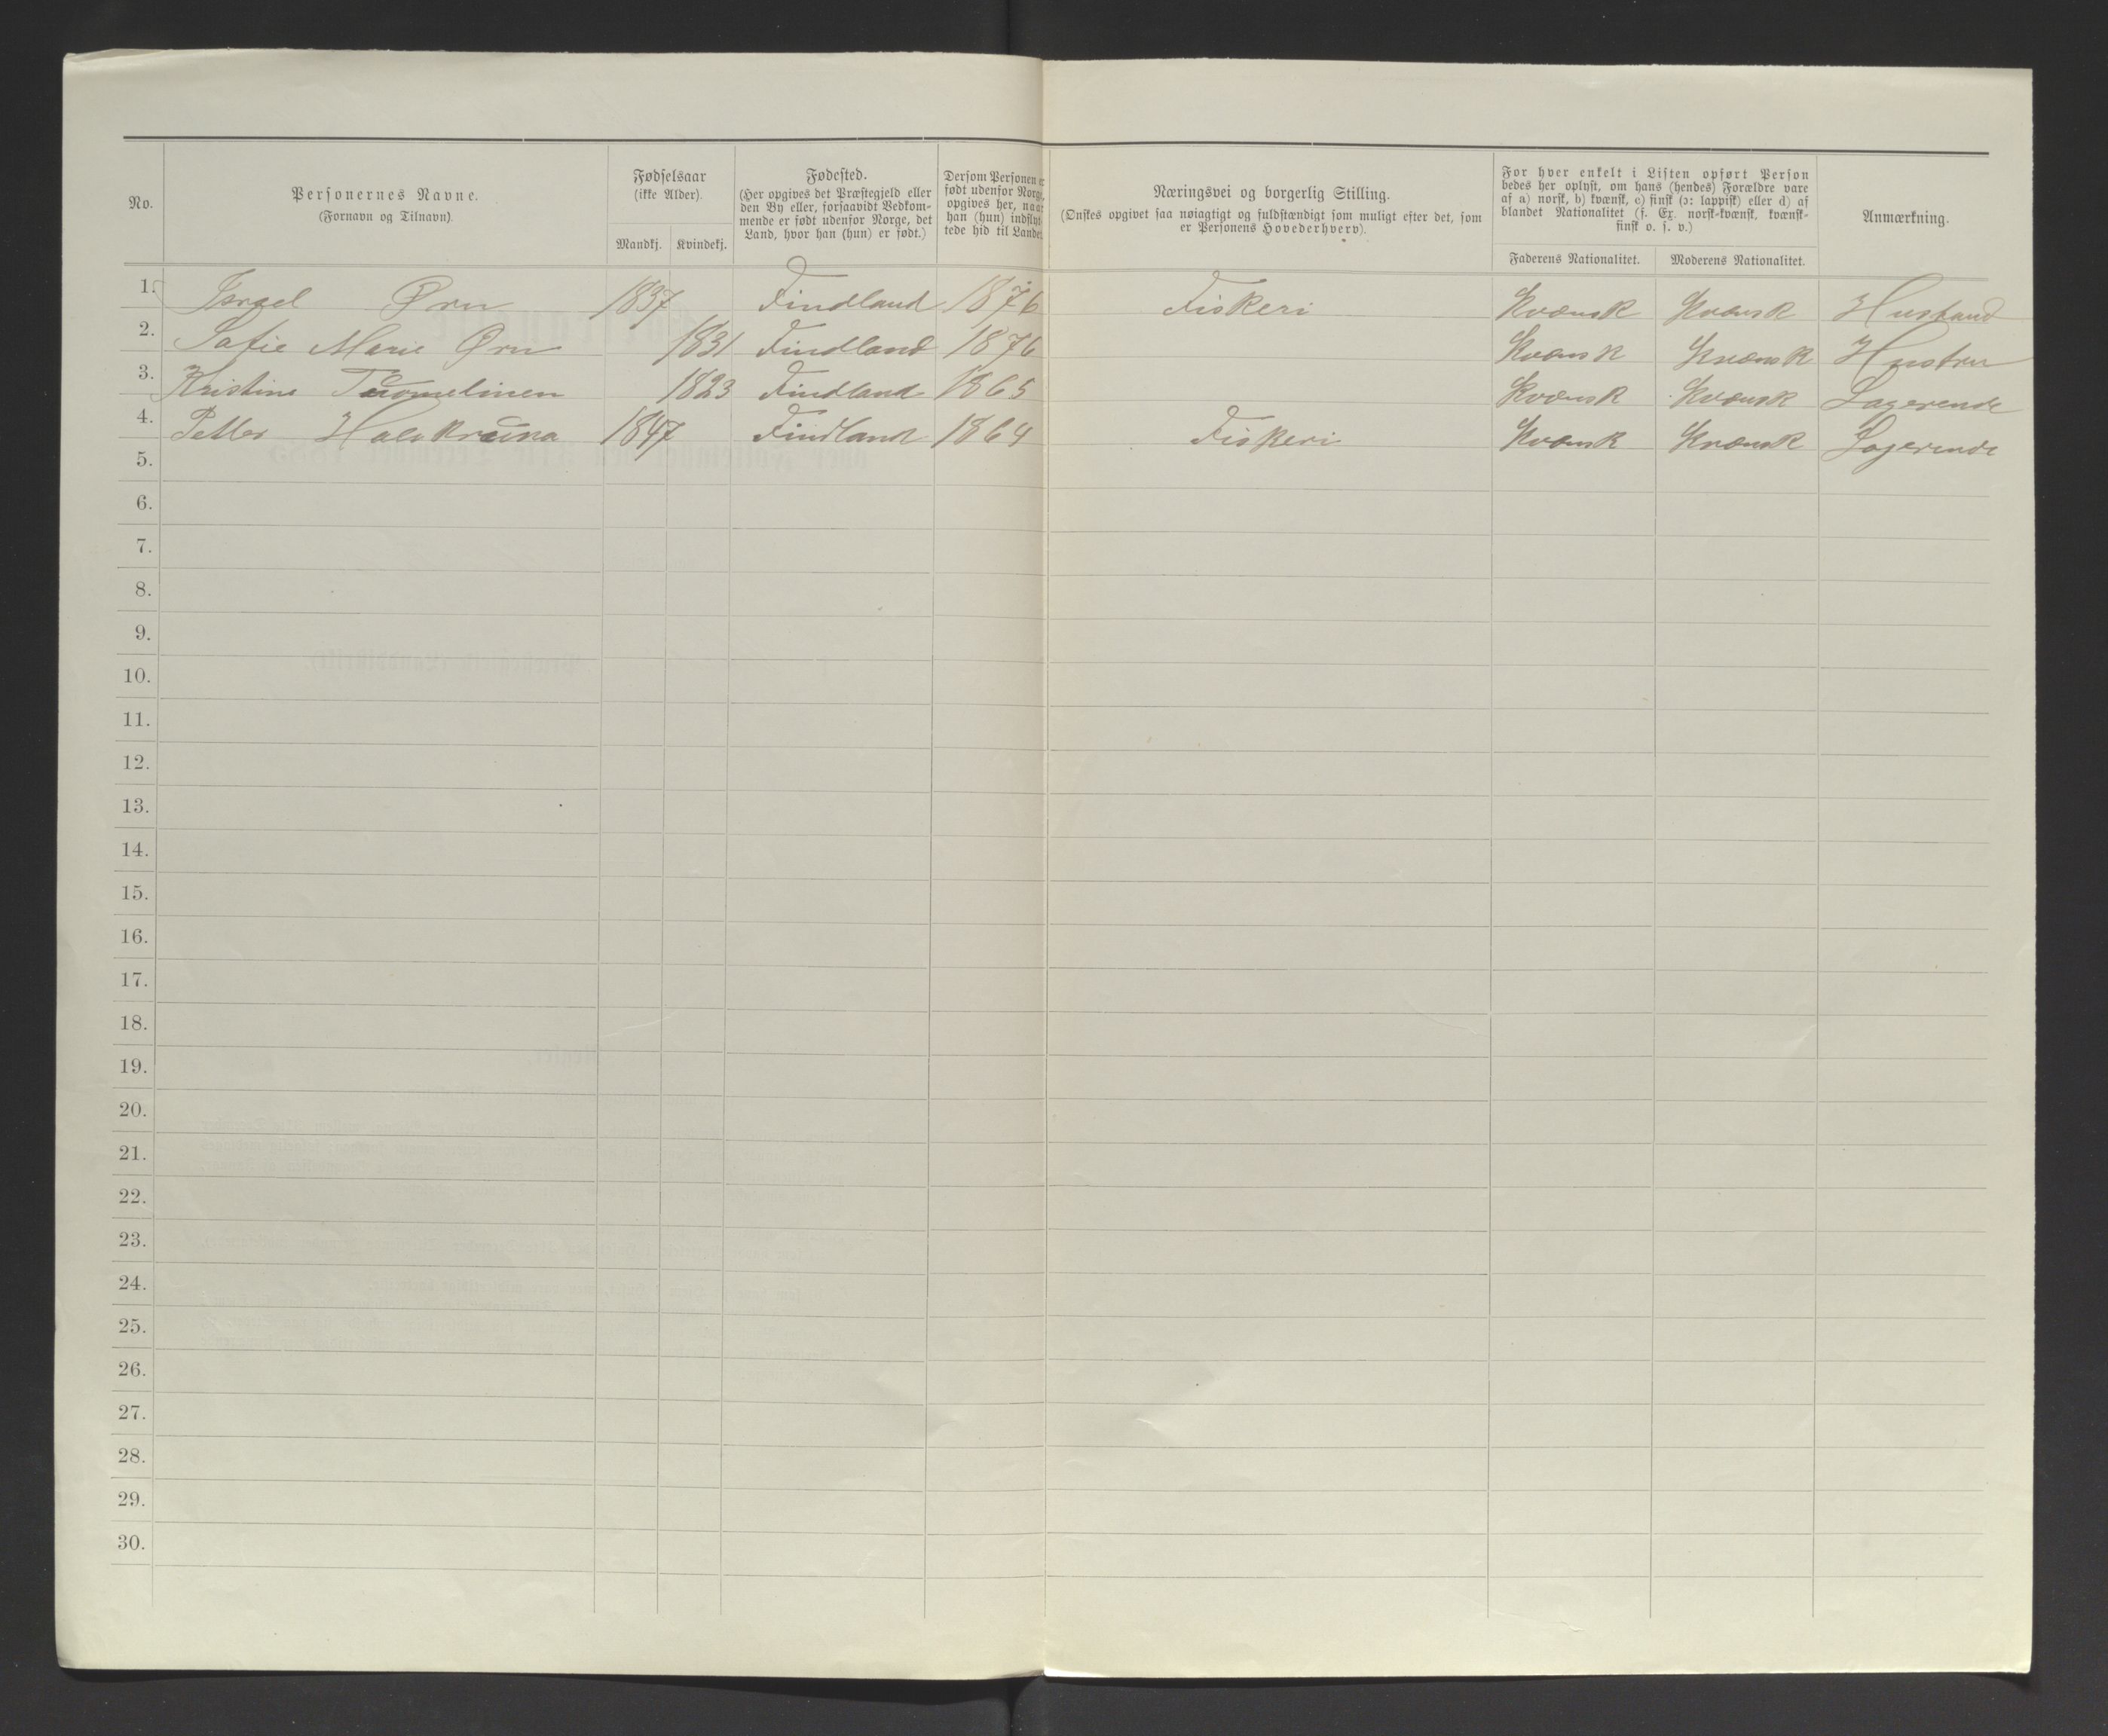 No.
Personernes Navne.
(Fornavn og Tilnavn).
Fødselsaar
(ikke Alder).
Mandkj. Kvindekj.
Fødested.
(Her opgives det Præstegjeld eller
den By eller, forsaavidt Vedkom-
mende er født udenfor Norge, det
Land, hvor han (hun) er født.)
Dersom Personen er
født udenfor Norge,
opgives her, naar
han (hun) indflyt-
tede hid til Landet.
Næringsvei og borgerlig Stilling.
(Ønskes opgivet saa nøiagtigt og fuldstændigt som muligt efter det, som
er Personens Hovederhverv).
For hver enkelt i Listen opført Person
bedes her oplyst, om hans (hendes) Forældre vare
af a) norsk, b) kvænsk, c) finsk (ɔ: lappisk) eller d) af
blandet Nationalitet (f. Ex. norsk-kvænsk, kvænsk-
finsk o. s. v.)
Faderens Nationalitet. Moderens Nationalitet.
Anmærkning.
1. Israel Ørn 1837 Findland 1876 Fiskeri Kvænsk Kvænsk Husband
2. Sofie Marie Ørn 1831 Findland 1876 Kvænsk Kvænsk Hustru
3. Kristine 1823 Findland 1865 Kvænsk Kvænsk Lagerende
4. Petter 1847 Findland 1864 Fiskeri Kvænsk Kvænsk Lagerende
5.
6.
7.
8.
9.
10.
11.
12.
13.
14.
15.
16.
17.
18.
19.
20.
21.
22.
23.
24.
25.
26.
27.
28.
29.
30.